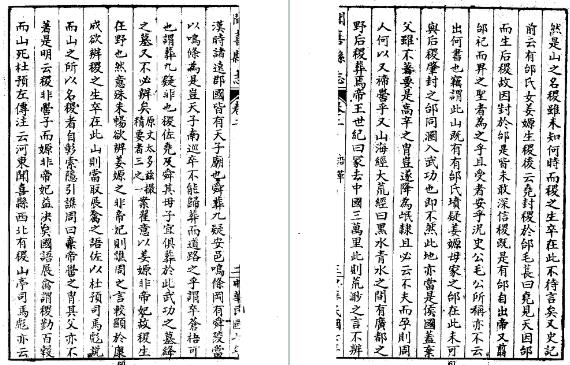 然是山之名稷雖未知何時而稷之生卒在此不待言矣又史記
前云有邰氏女姜嫄生稷後云堯封稷於邰毛長曰堯見天因邰
而生后稷故因封於邰是皆未敢深信稷既是有邰自出帝又翦
邰祀而畀之聖者為之乎且愛者安乎況史公毛公所稱亦不云
出何書也竊謂此山既有有邰氏墳疑姜嫄母家之邰在此未可
與后稷肇封之邰同溷入武功也即不然此地亦當是侯國蓋棄
父雖不著要是高辛之胄豈遂降為氓隸且必云不夫而孕則周
人何以又禘嚳乎又山海經大荒經曰黑水青水之間有廣都之
野后稷葬焉帝王世紀曰冢去中國三萬里此則荒渺之言不辨
聞喜縣志
漢時諸遠郡國皆有天子廟也舜葬九疑安邑鳴條岡有舜陵當
以鳴條為是豈天子南巡卒不能歸葬而道路之乎謂葬蒼梧可
也謂葬九疑非也稷佐堯及舜其母子宜俱葬於此武功之墓絳
之墓又不必辨矣原文太多茲撮精要者三之一業翟意以姜嫄非帝妃故稷生
在野也然意殊未暢欲辨姜嫄之非帝妃則譙周之言較頤於康
成欲辨稷之生卒在此山則當取展禽之語佐以杜預司馬彪說
而山之所以名稷者自彰索隱引譙周曰棄帝嚳之胄其父亦不
著是明云稷非嚳子而嫄非帝妃益決矣國語展禽謂稷勤百穀
而山死杜預左傳注云河東聞喜縣西北有稷山亭司馬彪亦云
聞喜縣志
卷二